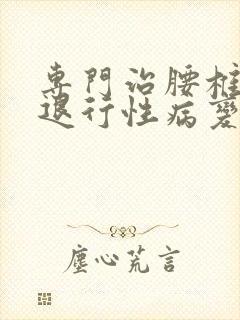 專門治腰椎
退行性病變
塵心荒言